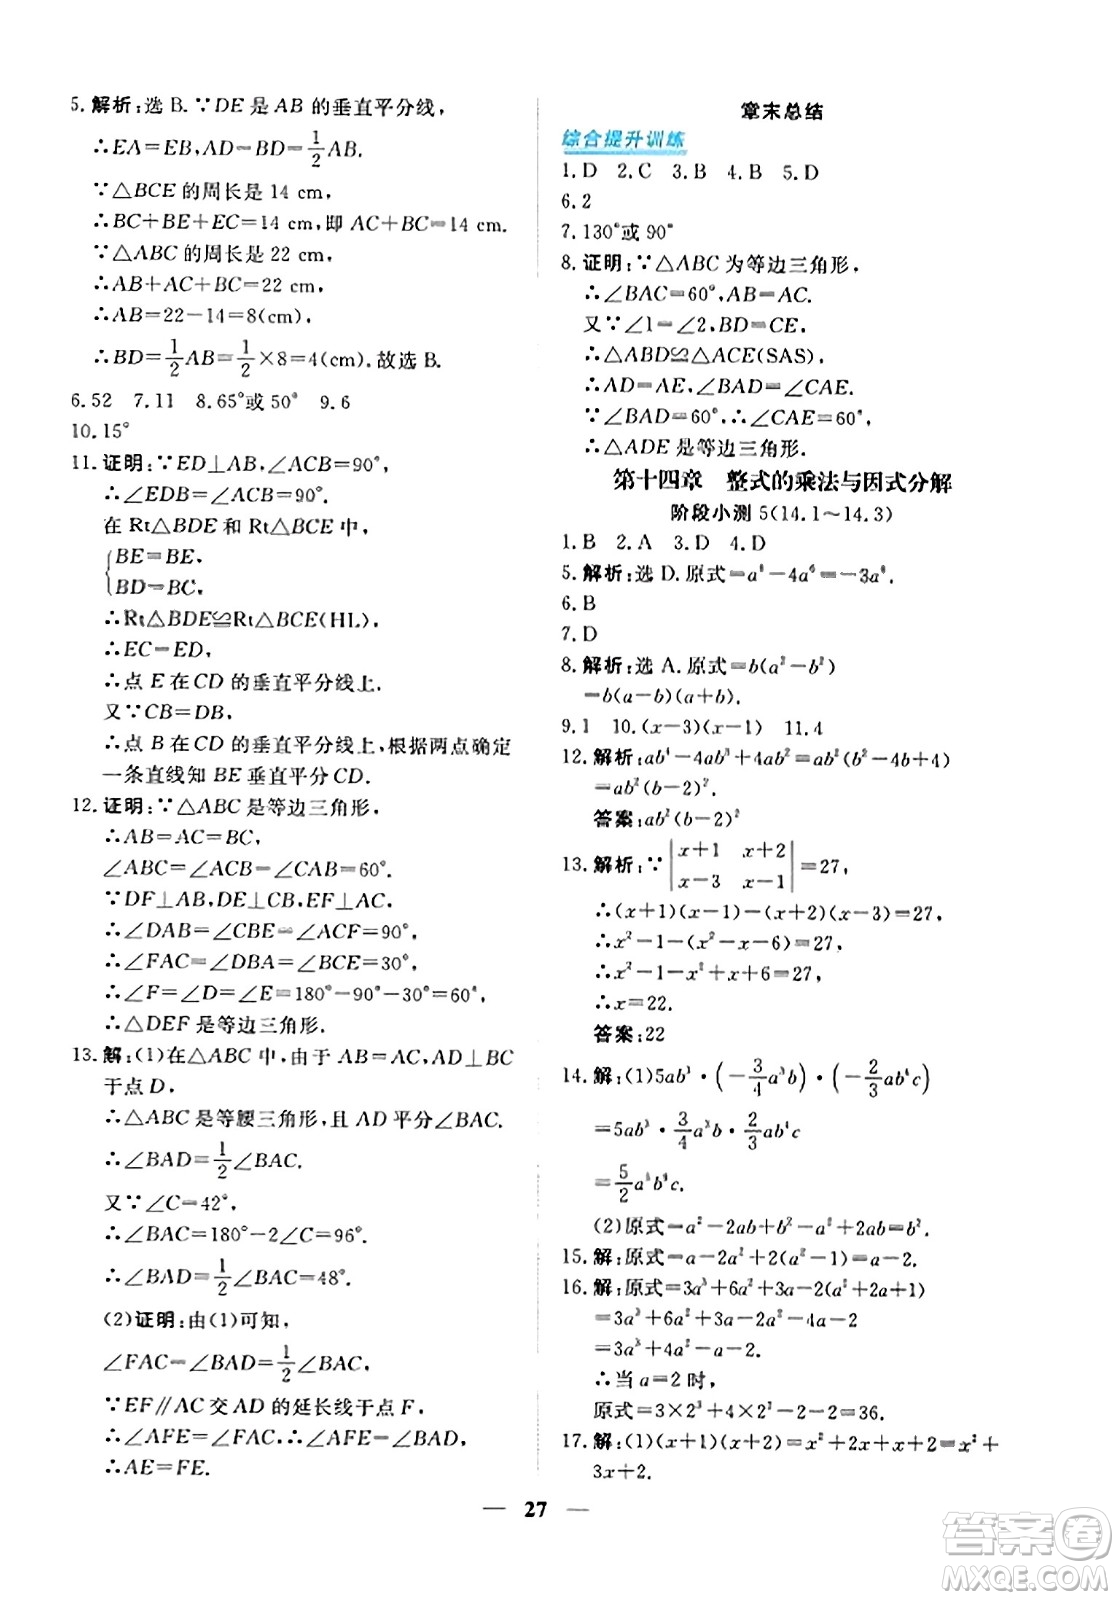 5.解析:选 B.∵DE 是 AB 的垂直平分线,
∴EA=EB,AD=BD=1/2 AB.
∵△BCE 的周长是 14 cm,
∴BC+BE+EC=14 cm,即 AC+BC=14 cm.
∵△ABC 的周长是 22 cm,
∴AB+AC+BC=22 cm,
∴AB=22-14=8(cm),
∴BD=1/2 AB=1/2×8=4(cm).故选 B.
6.52 7.11 8.65°或 50° 9.6
10.15°
11.证明:∵ED⊥AB,∠ACB=90°,
∴∠EDB=∠ACB=90°.
在 Rt△BDE 和 Rt△BCE 中,
{BE=BE,
BD=BC,
∴Rt△BDE≌Rt△BCE(HL),
∴EC=ED,
∴点 E 在 CD 的垂直平分线上.
又∵CB=DB,
∴点 B 在 CD 的垂直平分线上,根据两点确定
一条直线知 BE 垂直平分 CD.
12.证明:∵△ABC 是等边三角形,
∴AB=AC=BC,
∠ABC=∠ACB=∠CAB=60°.
∵DF⊥AB,DE⊥CB,EF⊥AC,
∴∠DAB=∠CBE=∠ACF=90°,
∴∠FAC=∠DBA=∠BCE=30°,
∴∠F=∠D=∠E=180°-90°-30°=60°,
∴△DEF 是等边三角形.
13.解:(1)在△ABC 中,由于 AB=AC,AD⊥BC
于点 D,
∴△ABC 是等腰三角形,且 AD 平分∠BAC.
∴∠BAD=1/2∠BAC.
又∵∠C=42°,
∴∠BAC=180°-2∠C=96°,
∴∠BAD=1/2∠BAC=48°.
(2)证明:由(1)可知,
∠FAC=∠BAD=1/2∠BAC,
∵EF∥AC 交 AD 的延长线于点 F,
∴∠AFE=∠FAC,∴∠AFE=∠BAD,
∴AE=FE.
章末总结
综合提升训练
1.D 2.C 3.B 4.B 5.D
6.2
7.130°或 90°
8.证明:∵△ABC 为等边三角形,
∴∠BAC=60°,AB=AC.
又∵∠1=∠2,BD=CE,
∴△ABD≌△ACE(SAS),
∴AD=AE,∠BAD=∠CAE.
∵∠BAD=60°,∴∠CAE=60°,
∴△ADE 是等边三角形.
第十四章 整式的乘法与因式分解
阶段小测 5(14.1～14.3)
1.B 2.A 3.D 4.D
5.解析:选 D.原式=a⁶-4a⁶=-3a⁶.
6.B
7.D
8.解析:选 A.原式=b(a²-b²)
=b(a-b)(a+b).
9.1 10.(x-3)(x-1) 11.4
12.解析:ab⁴-4ab³+4ab²=ab²(b²-4b+4)
=ab²(b-2)².
答案:ab²(b-2)²
13.解析:∵|x+1 x+2|
|x-3 x-1|=27,
∴(x+1)(x-1)-(x+2)(x-3)=27,
∴x²-1-(x²-x-6)=27,
∴x²-1-x²+x+6=27,
∴x=22.
答案:22
14.解:(1)5ab³·(-3/4 a³b)·(-2/3 ab⁴c)
=5ab³·3/4 a³b·2/3 ab⁴c
=5/2 a⁵b⁸c.
(2)原式=a²-2ab+b²-a²+2ab=b².
15.解:原式=a-2a²+2(a²-1)=a-2.
16.解:原式=3a³+6a²+3a-2(a²+2a+1)
=3a³+6a²+3a-2a²-4a-2
=3a³+4a²-a-2.
∴当 a=2 时,
原式=3×2³+4×2²-2-2=36.
17.解:(1)(x+1)(x+2)=x²+x+2x+2=x²+
3x+2.
— 27 —
答案圈
MXQE.COM